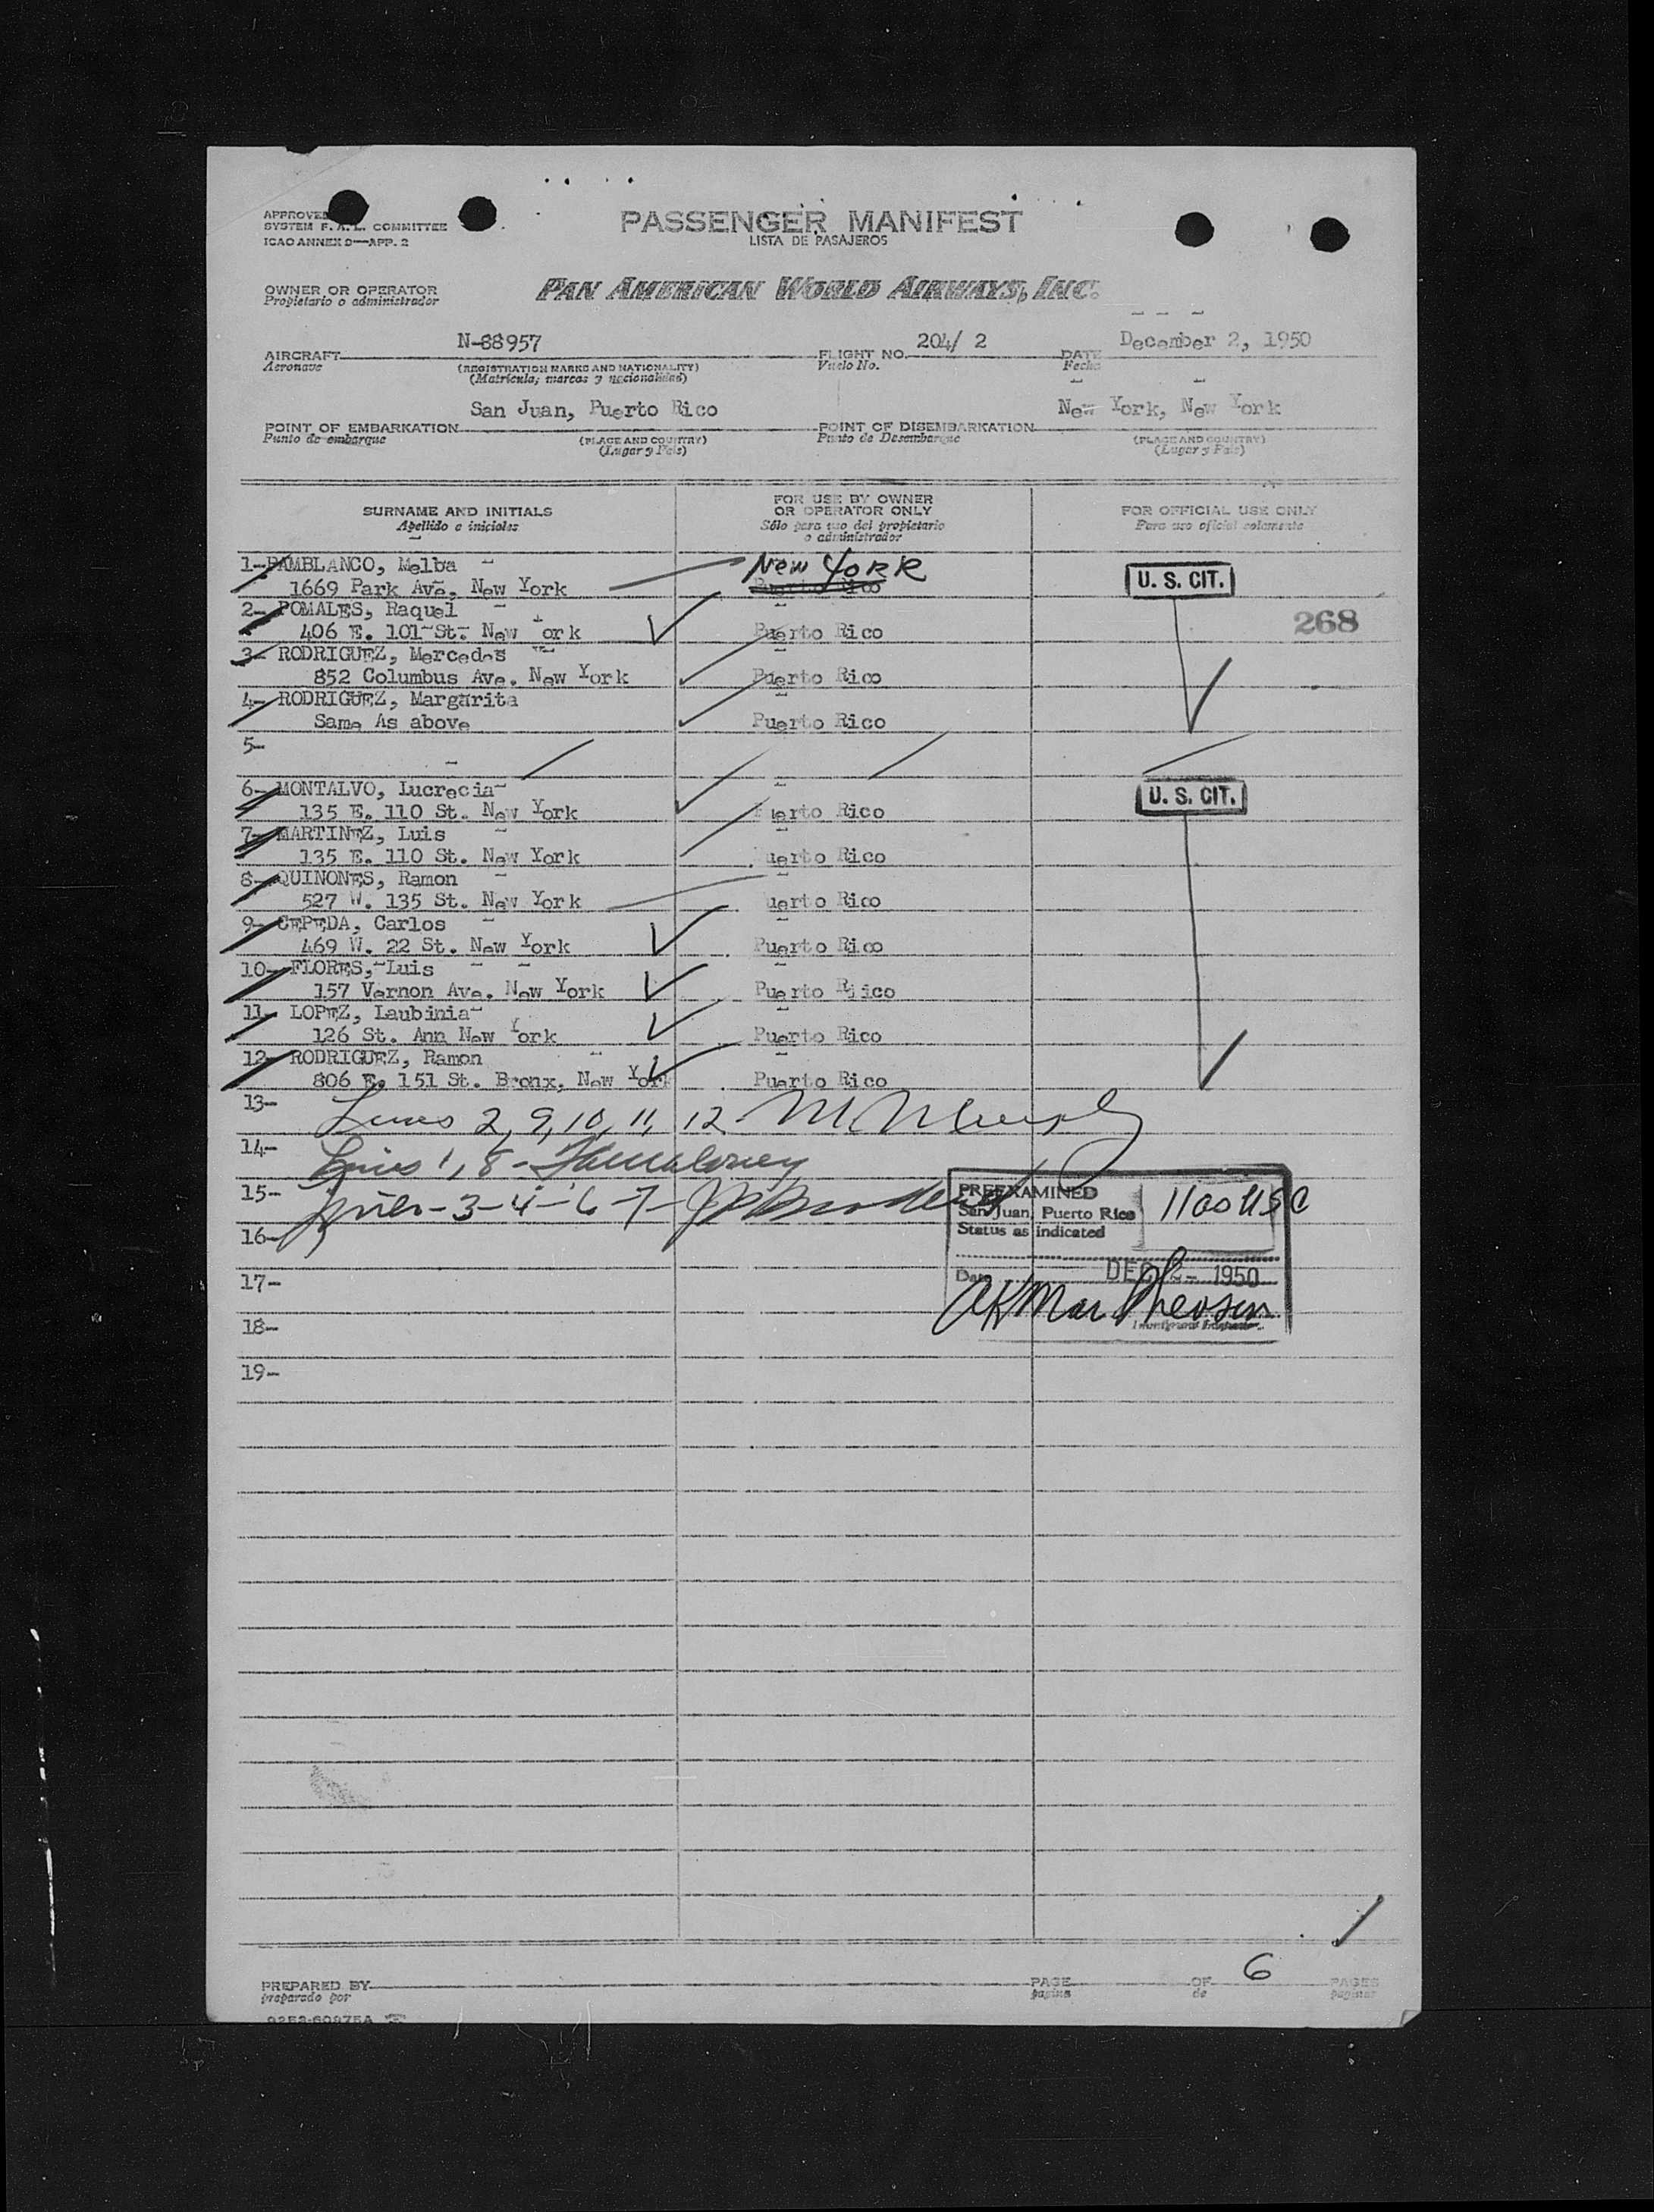 APPROVED
SYSTEM F. A. L. COMMITTEE
ICAO ANNEX 9—APP. 2
PASSENGER MANIFEST
LISTA DE PASAJEROS
OWNER OR OPERATOR
Propietario o administrador
PAN AMERICAN WORLD AIRWAYS, INC.
N-88957 204/ 2 December 2, 1950
AIRCRAFT FLIGHT NO. DATE
Aeronave (REGISTRATION MARKS AND NATIONALITY) Vuelo No. Fecha
(Matrícula; marcas y nacionalidad)
San Juan, Puerto Rico New York, New York
POINT OF EMBARKATION POINT OF DISEMBARKATION
Punto de embarque (PLACE AND COUNTRY) Punto de Desembarque (PLACE AND COUNTRY)
(Lugar y País) (Lugar y País)
SURNAME AND INITIALS FOR USE BY OWNER OR OPERATOR ONLY FOR OFFICIAL USE ONLY
Apellido e iniciales Sólo para uso del propietario o administrador Para uso oficial solamente
1- PAMBLANCO, Melba New York
1669 Park Ave, New York Puerto Rico U. S. CIT.
2- POMALES, Raquel 268
406 E. 101 St. New York Puerto Rico
3- RODRIGUEZ, Mercedes
852 Columbus Ave. New York Puerto Rico
4- RODRIGUEZ, Margarita
Same As above Puerto Rico
5-
6- MONTALVO, Lucrecia U. S. CIT.
135 E. 110 St. New York Puerto Rico
7- MARTINEZ, Luis
135 E. 110 St. New York Puerto Rico
8- QUINONES, Ramon
527 W. 135 St. New York Puerto Rico
9- CEPEDA, Carlos
469 W. 22 St. New York Puerto Rico
10- FLORES, Luis
157 Vernon Ave. New York Puerto Riico
11- LOPEZ, Laubinia
126 St. Ann New York Puerto Rico
12- RODRIGUEZ, Ramon
806 E. 151 St. Bronx, New York Puerto Rico
13- Lines 2, 9, 10, 11, 12
14- Lines 1, 8 -
15- Lines - 3 - 4 - 6 - 7 -
PREEXAMINED
San Juan, Puerto Rico
Status as indicated
1100 USC
16-
Date DEC 2 - 1950
17-
Immigrant Inspector
18-
19-
6
PREPARED BY PAGE OF PAGES
preparado por pagina de paginas